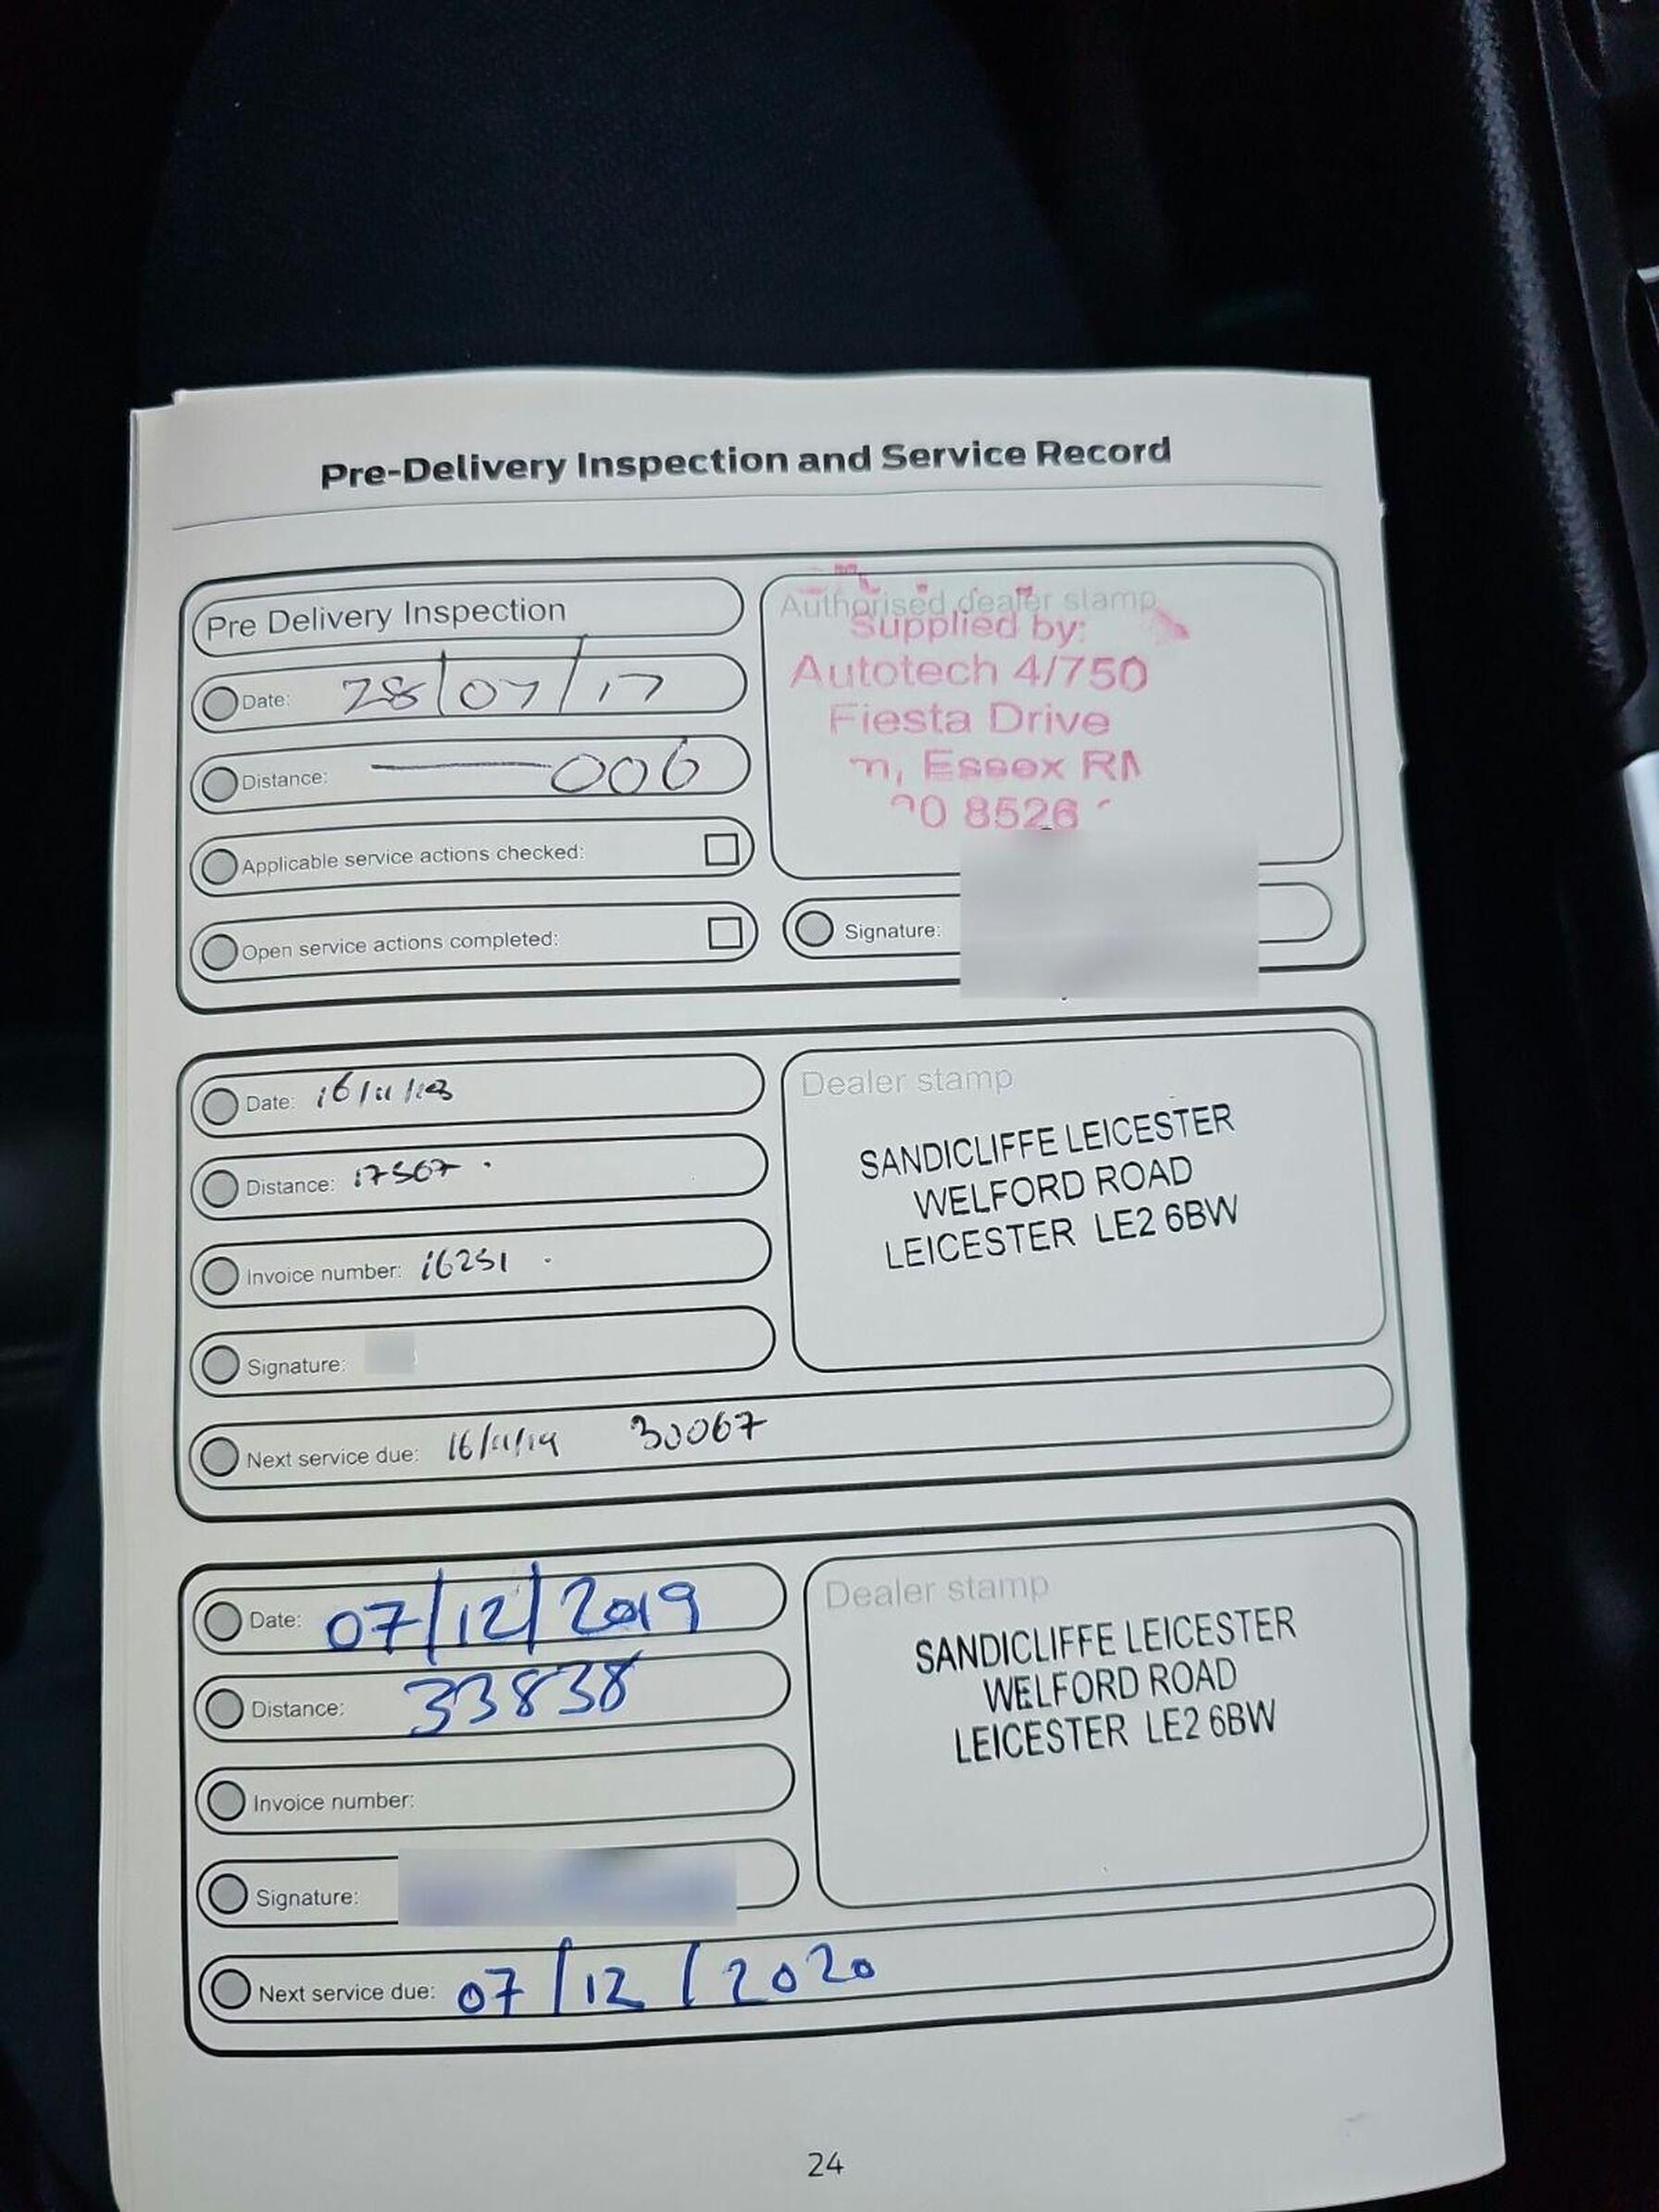 Pre-Delivery Inspection and Service Record
Pre Delivery Inspection
Date: 28/07/17
Distance: 006
Applicable service actions checked:
Open service actions completed:
Authorised dealer stamp
Supplied by:
Autotech 4/750
Fiesta Drive
Essex
8526
Signature:
Date:
Distance: 17567
Invoice number: 16251
Signature:
Next service due: 16/11/19 30067
Dealer stamp
SANDICLIFFE LEICESTER
WELFORD ROAD
LEICESTER LE2 6BW
Date: 07/12/2019
Distance: 33838
Invoice number:
Signature:
Next service due: 07/12/2020
Dealer stamp
SANDICLIFFE LEICESTER
WELFORD ROAD
LEICESTER LE2 6BW
24